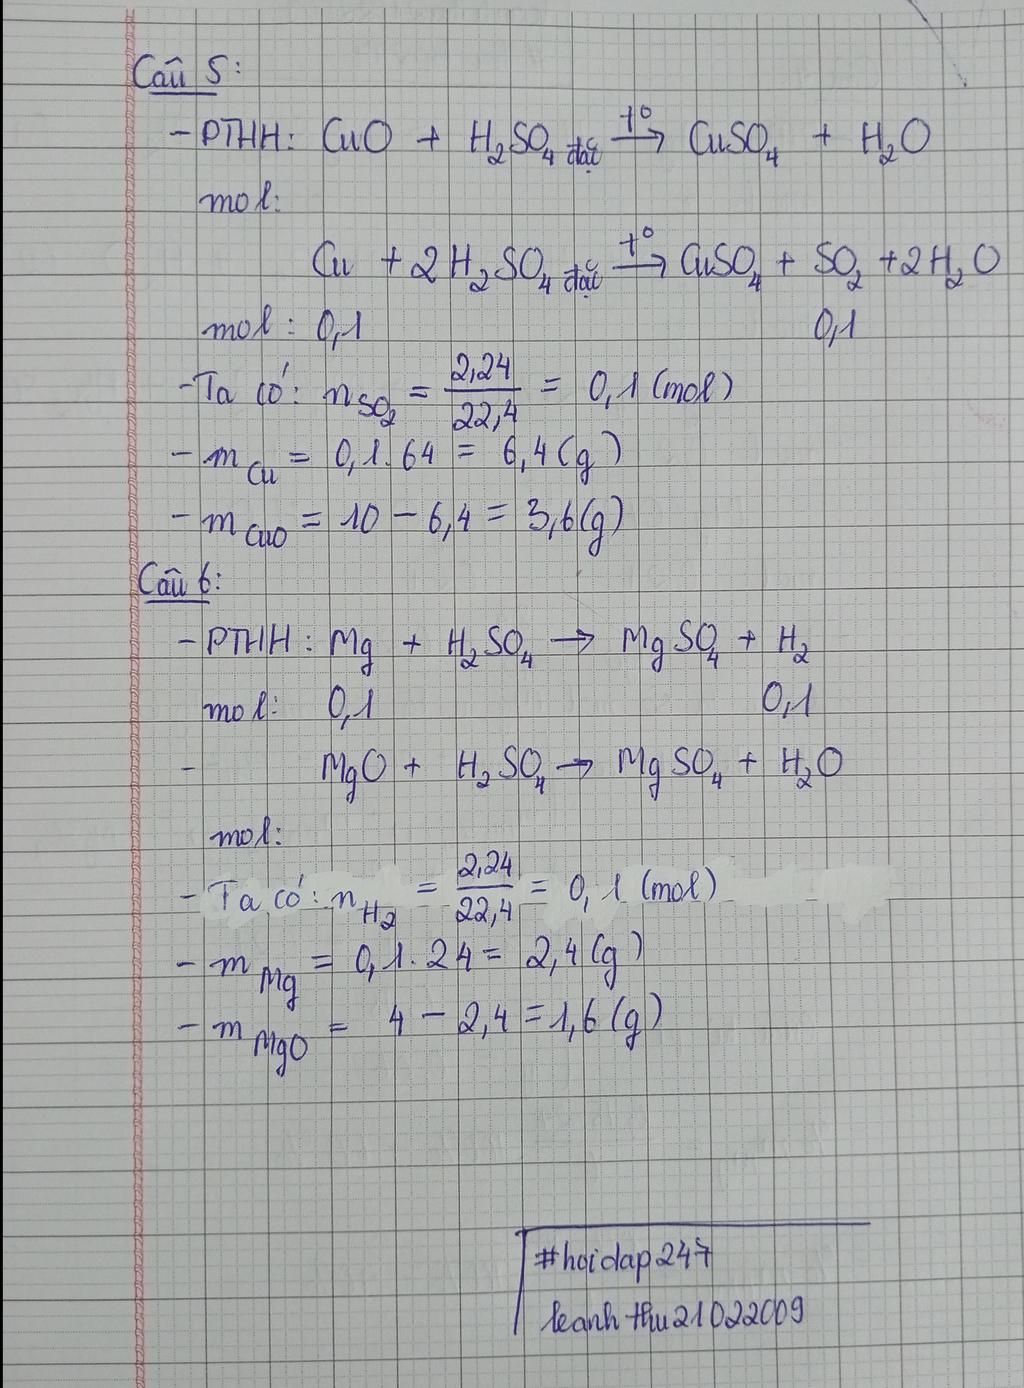 Câu 5:
- PTHH: CuO + H₂SO₄ đặc t°→ CuSO₄ + H₂O
mol:
Cu + 2H₂SO₄ đặc t°→ CuSO₄ + SO₂ + 2H₂O
mol: 0,1 0,1
- Ta có: nSO₂ = 2,24/22,4 = 0,1 (mol)
- mCu = 0,1.64 = 6,4(g)
- mCuO = 10 - 6,4 = 3,6(g)
Câu 6:
- PTHH: Mg + H₂SO₄ → MgSO₄ + H₂
mol: 0,1 0,1
- MgO + H₂SO₄ → MgSO₄ + H₂O
mol:
- Ta có: nH₂ = 2,24/22,4 = 0,1 (mol)
- mMg = 0,1.24 = 2,4(g)
- mMgO = 4 - 2,4 = 1,6(g)
#hoidap247
leanhthu21022009